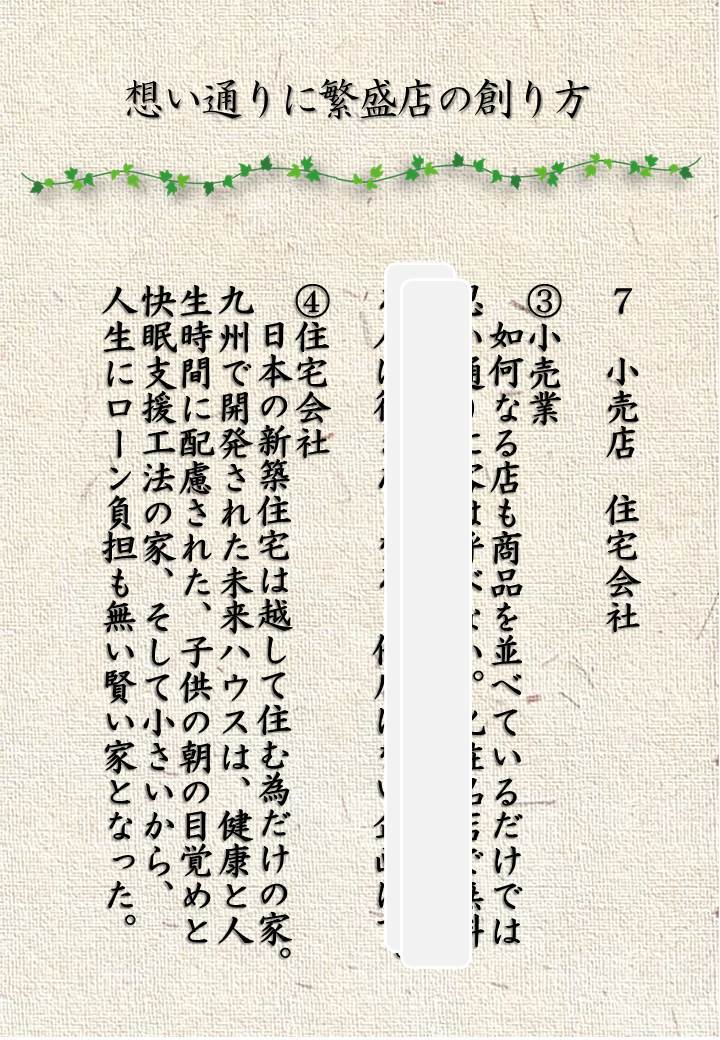 想い通りに繁盛店の創り方
7　小売店　住宅会社
③小売業
如何なる店も商品を並べているだけでは
④住宅会社
日本の新築住宅は越して住む為だけの家。
九州で開発された未来ハウスは、健康と人
生時間に配慮された、子供の朝の目覚めと
快眠支援工法の家、そして小さいから、
人生にローン負担も無い賢い家となった。